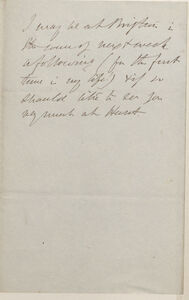 I may be at Brighton in
the course of next week
or following (for the first
time in my life) & if so
should like to see you
very much at Hurst